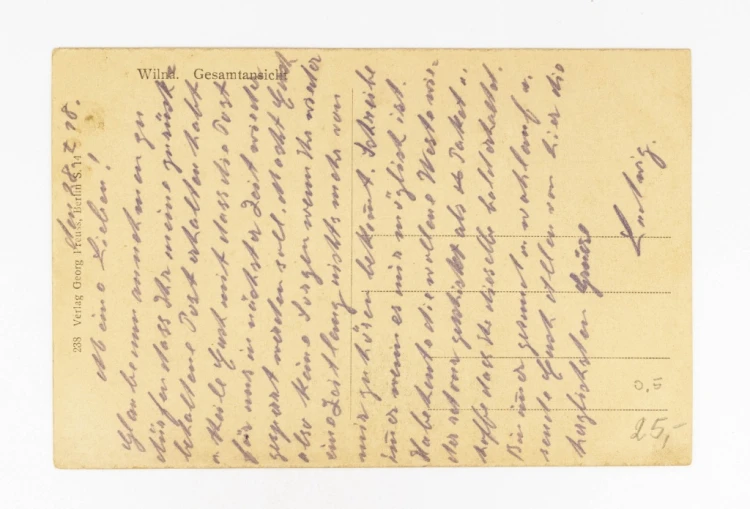 Wilna. Gesamtansicht
238 Verlag Georg Preuss, Berlin S. 14
Den 28. 2. 18.
Meine Lieben!
Glaube nun annehmen zu
dürfen dass Ihr meine zurück=
behaltene Post erhalten habt
u. teile Euch mit dass die Post
für uns in nächster Zeit wieder
gesperrt werden soll. Macht Euch
also keine Sorgen wenn Ihr wieder
eine Zeit lang nichts mehr von
mir zu hören bekomt. Schreibe
imer wenn es mir möglich ist.
Habe heute die wollene Weste wie-
der retour geschickt als Paket u.
hoffe dass Ihr dieselbe bald erhaltet.
Bin imer gesund u. wohlauf u.
sende Euch Allen von hier die
herzlichsten Grüsse
Ludwig.
25,-